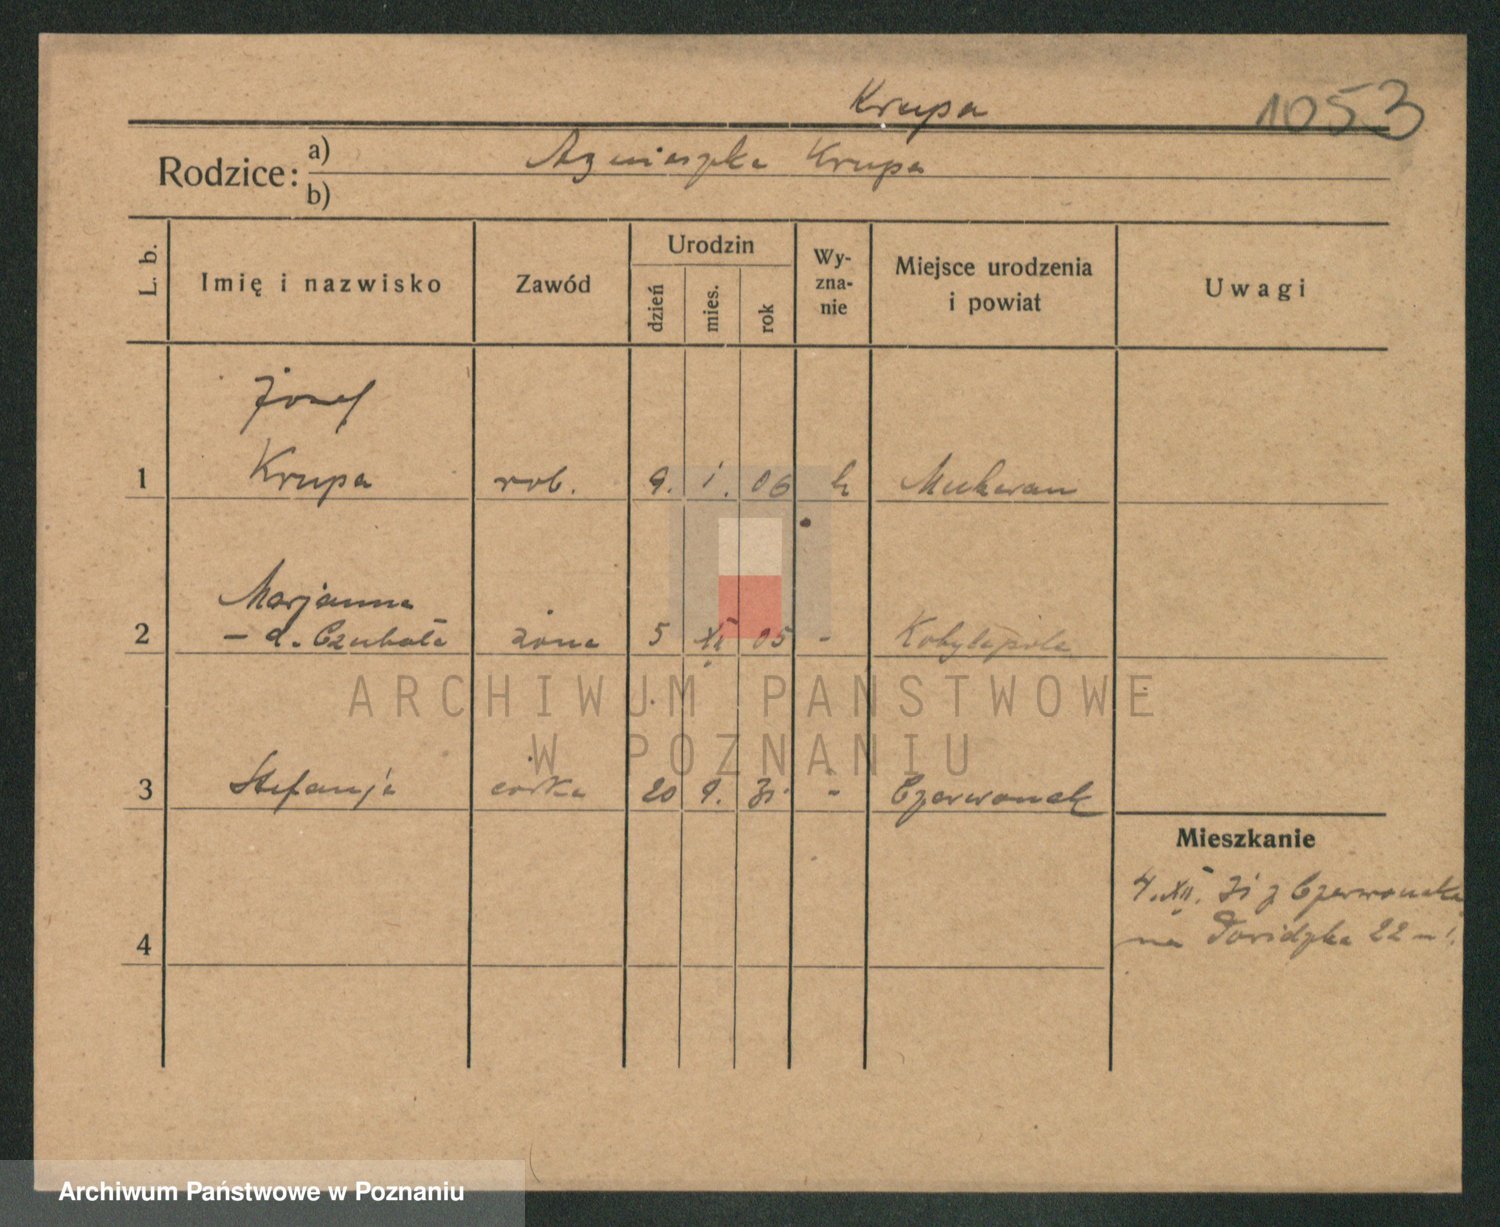 Krupa
1053
Rodzice:
a) Agnieszka Krupa
b)
L. b.
Imię i nazwisko
Zawód
Urodzin
dzień
mies.
rok
Wy-
zna-
nie
Miejsce urodzenia
i powiat
Uwagi
Józef
1 Krupa rob. 9. 1. 06 k
Marjanna
2 – d. Czubała żona 5 XII 05 - Kobylepole
3 Stefanja córka 20 9. 31 - Czerwonak
Mieszkanie
4. XII. 31 z Czerwonaka
na 22
4
ARCHIWUM PAŃSTWOWE
W POZNANIU
Archiwum Państwowe w Poznaniu